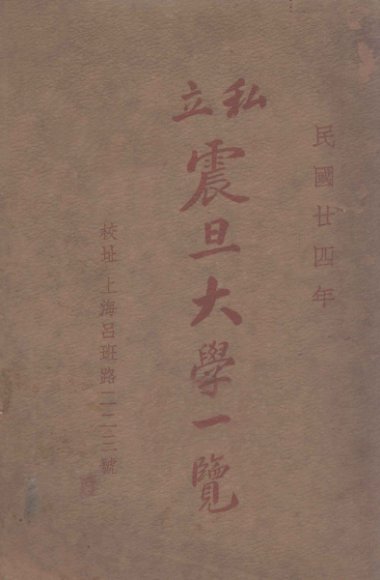 民國廿四年
私立
震旦大學一覽
校址 上海呂班路二二三號